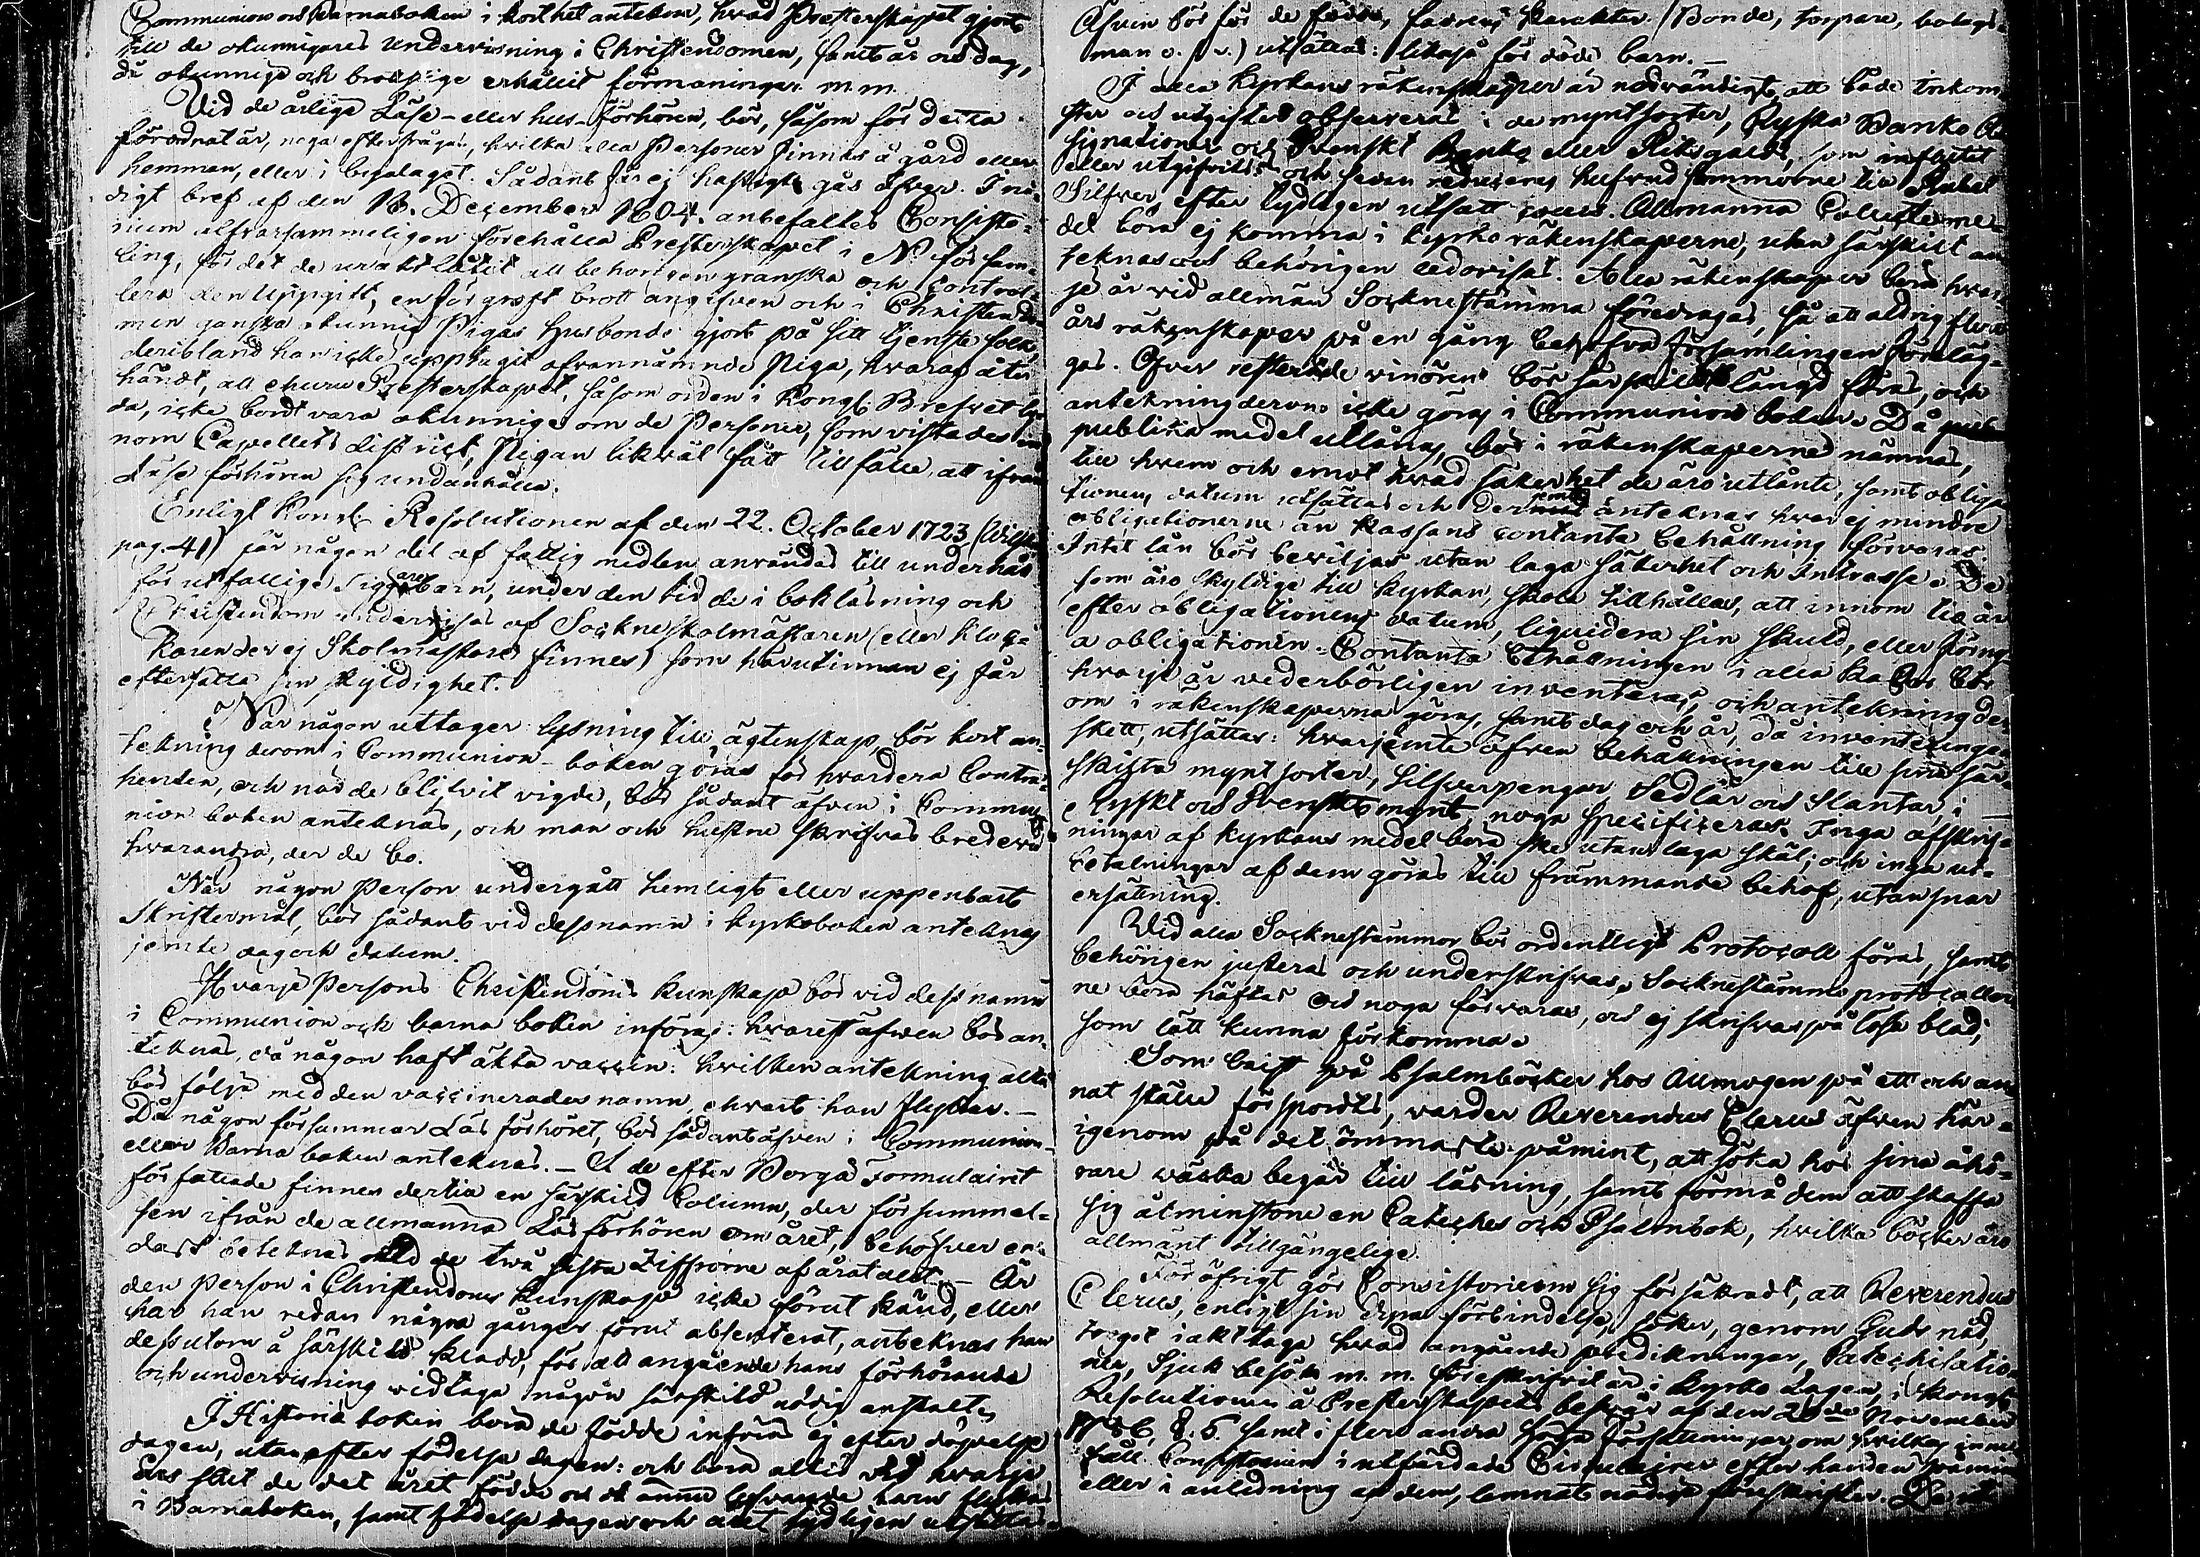 Communion och Barnaboken i korthet antekna, hvad Presterskapet gjort
till de okunnigares undervisning i Christendomen, samt år och dag,
då okunnige och brottslige erhållit förmaningar m.m.
Vid de årlige Läse- eller hus-förhören, bör, såsom för detta
förordnat är, noga efterfrågas, hvilka alla Personer finnas å gård eller
hemman, eller i bolaget. Sådant får ej hastigt gås öfver. I nå-
digt bref af den 18. December 1804. anbefaltes Consisto-
rium alfvarsammeligen förehålla Presterskapet i N. försam-
ling, för det de uraktlåtit att behörigen granska och control-
lera den Uppgift, en för groft brott angifven och i Christendo-
men ganska okunnig Pigas husbonde gjort på sitt tjenste folk,
deribland han icke upptagit ofvannämnde Piga, hvaraf åter
händt, att ehuru Presterskapet, såsom orden i Kongl. Brefvet ly-
da, icke bordt vara okunnige om de Personer, som vistades in-
nom Capellets district, Pigan likväl fått tillfälle, att ifrån
Läse förhören sig undanhålla.
Enligt Kongl. Resolutionen af den 22. October 1723
pag. 41) får någon del af fattig medlen användas till undernär
för utfattige Tiggarebarn, under den tid de i boklärning och
Christendom undervisas af Sockneskolmästaren (eller Kloc-
karen der ej Skolmästare finnes) som härutinnan ej får
eftersätta sin skyldighet.
När någon uttager lysning till ägtenskap, bör kort an-
tekning derom i Communion-boken göras för hvardera Contra-
henten, och när de blifvit vigde, bör sådant äfven i Commu-
nion boken anteknas, och man och hustru skrifvas bredevid
hvarandra, der de bo.
När någon Person undergått hemligt eller uppenbart
Skriftermål, bör sådant vid dess namn i kyrkoboken anteknas
jemte dag och datum.
Hvarje Persons Christendoms kunskap bör vid dess namn
i Communion och barna boken införas: hvarest äfven bör an-
teknas, då någon haft äkta vaccin: hvilken antekning alltid
bör följa med den vaccinerades namn, ehvart han flyttar. —
Då någon försummar Läs förhöret, bör sådant äfven i Communion
eller Barna boken anteknas. — I de efter Borgå Formulairet
författade finnes dertill en särskild Column, der försummel-
sen ifrån de allmänna Läsförhören om året, behöfver en-
dast beteknas med de två sista Ziffrorne af årtalet. — Är
den person i Christendoms kunskap icke förut känd, eller
har han redan några gånger förut absenterat, anteknas han
dessutom å särskild klass, för att angående hans förhörande
och undervisning vidtaga någon särskild nödig anstalt.
I Historie boken böra de födde införas ej efter döpelse
dagen, utan efter födelse dagen: och böra altid vid hvarje
års slut de det året födde och då ännu lefvande barn flyttas
i Barnaboken, samt födelse dagen och året tydligen utsättas.
Äfven bör för de födde, fadrens karakter (Bonde, torpare, bolags-
man o. s. v.) utsättas: likaså för döde barn. —
I alla kyrkans räkenskaper är nödvändigt, att både inkom-
ster och utgifter observeras i de myntsorter, Ryska Banko As-
signationer och Svenskt Banko eller Riksgälds, som influtit
eller utgifvits och sedan reduceras hufvud summorne till Rubel
Silfver, efter tydligen utsatt cours. Allmänna Collecteme-
del böra ej komma i kyrko räkenskaperne, utan särskilt an-
teknas och behörigen redovisas. Alla räkenskaper böra hvar-
je år vid allmän Sockne stämma föredragas, så att aldrig flera
års räkenskaper på en gång behöfva församlingen föreläg-
gas. Öfver resterande vinören bör särskild längd föras, och
antekning derom icke göras i Communion boken. Då
publika medel utlånas, bör i räkenskaperne nämnas,
till hvem och emot hvad säkerhet de äro utlånte, samt obliga-
tionens datum utsättas och derjemte anteknas hvar ej mindre
obligationerne än Kassans contanta behållning förvaras.
Intet lån bör beviljas utan laga säkerhet och Intresse. De
som äro skyldige till Kyrkan, skola tillhållas, att innom tio år
efter obligationens datum, liquidera sin skuld, eller förny-
a obligationen. Contanta behållningen i alla Kassor bör
hvarje år vederbörligen inventeras, och antekning der-
om i räkenskaperna göras, samt dag och år, då inventeringen
skett, utsättas: hvarjemte äfven behållningen till sina sär-
skilda myntsorter, Silfverpengar Sedlar och slantar, i
Ryskt och Svenskt mynt, noga specificeras. Inga afskrif-
ningar af Kyrkans medel böra ske utan laga skäl; och inga ut-
betalningar af dem göras till främmande behof, utan snar
ersättning.
Vid alla Socknestämmor bör ordentligt Protocoll föras, samt
behörigen justeras och underskrifvas. Socknestämmo protocoller-
ne böra häftas och noga förvaras, och ej skrifvas på lösa blad,
som lätt kunna förkomma.
Som brist på Psalmböcker hos Allmogen på ett och an-
nat ställe försports, varder Reverendus Clerus äfven här-
igenom på det ömmaste påmint, att söka hos sina åhö-
rare väcka begär till läsning, samt förmå dem att skaffa
sig åtminstone en Cateches och Psalmbok, hvilka böcker äro
allmänt tillgängelige.
För öfrigt gör Consistorium sig försäkradt, att Reverendus
Clerus, enligt sin dyra förbindelse, söker, genom Guds nåd,
troget iakttaga hvad angående predikningar, Catechisatio-
ner, Sjuk besök m. m. föreskrifvit är i Kyrko Lagen, i Kongl.
Resolutionen å Presterskapets besvär af den 20de November
1786, §. 5. samt i flere andra höga författningar, om hvilka
Consistorium i utfärdade Circulairer efter handen påmint
eller i anledning af dem, lemnat nödige föreskrifter.